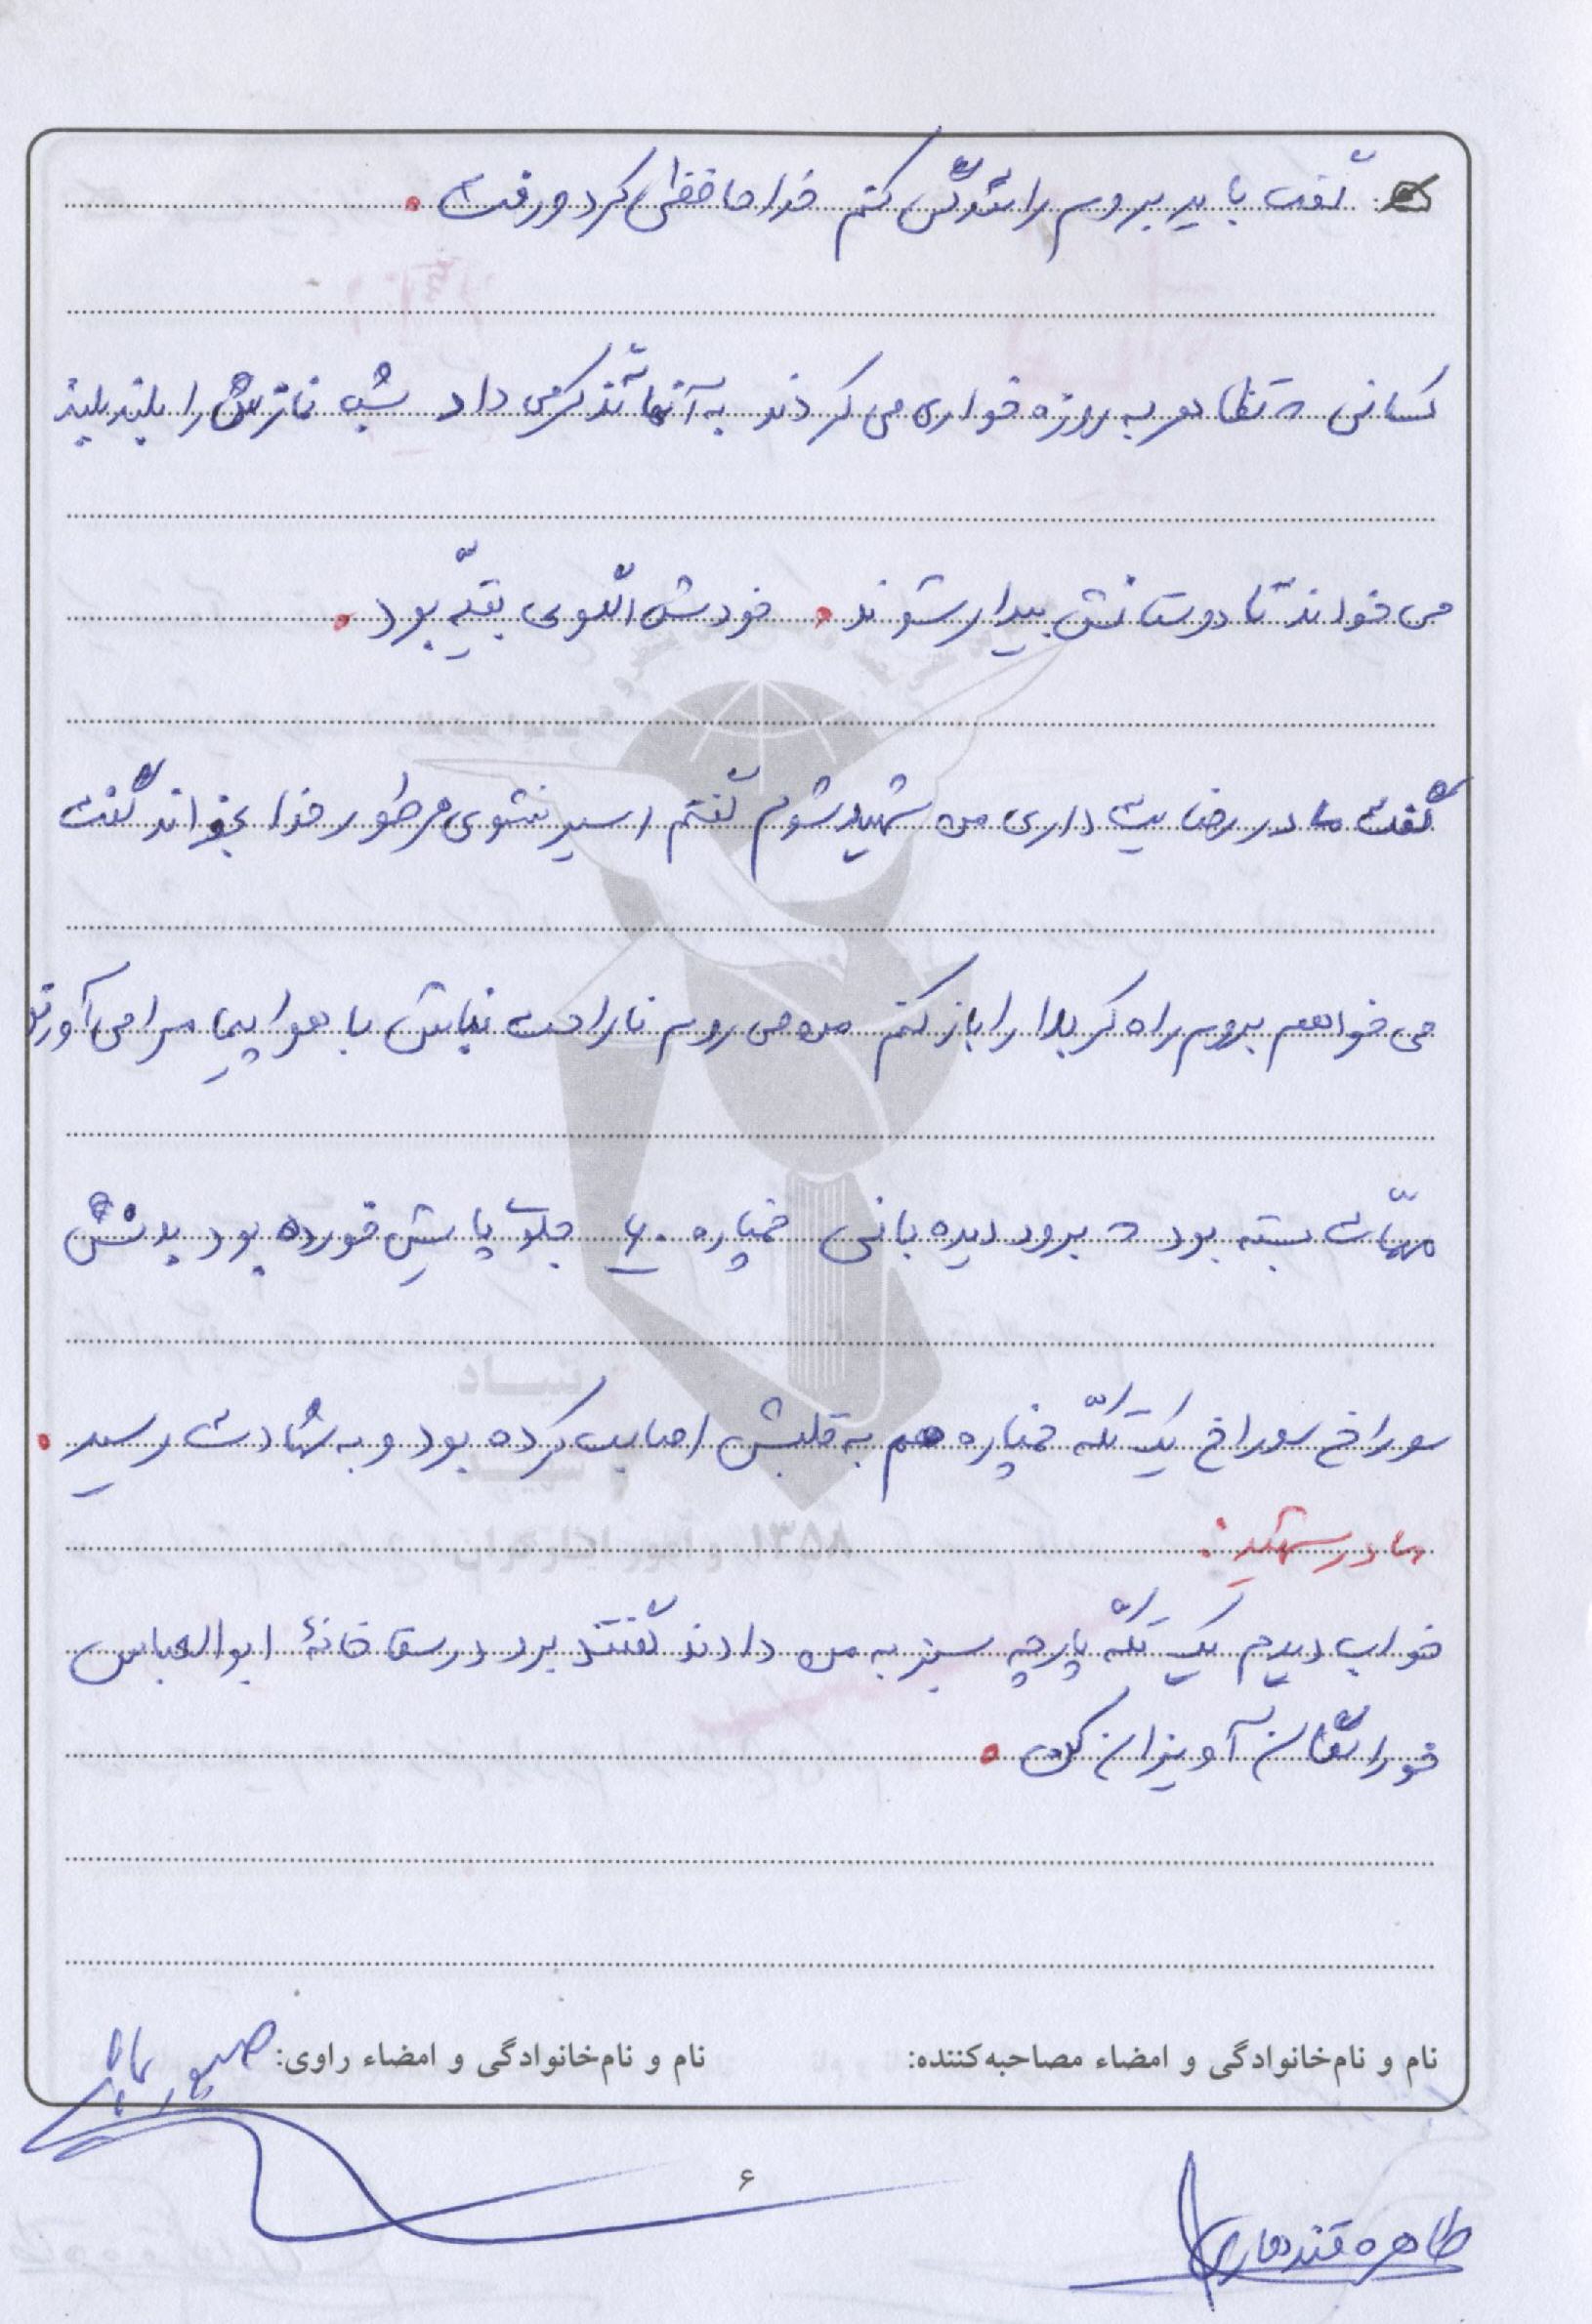 گفت باید بروم رانندگی کنم خداحافظی کرد و رفت.
کسانی که تظاهر به روزه خواری می کردند به آنها تذکر می داد شب نمازش را بلند بلند
می خواند تا دوستانش بیدار شوند. خودش الگوی بقیّه بود.
گفت مادر رضایت داری من شهید شوم گفتم اسیر نشوی هر طور خدا بخواند گفت
می خواهم بروم راه کربلا را باز کنم من می روم ناراحت نباش با هواپیما مرا می آورند
مهمّات بسته بود که برود دیده بانی خمپاره ۶۰ جلوی پایش خورده بود بدنش
سوراخ سوراخ یک تکّه خمپاره هم به قلبش اصابت کرده بود و به شهادت رسید.
مادر شهید:
خواب دیدم یک تکّه پارچه سبز به من دادند گفتند برد در سقاخانهٔ ابوالعباس
خوراسگان آویزان کن.
نام و نام‌خانوادگی و امضاء مصاحبه‌کننده:
نام و نام‌خانوادگی و امضاء راوی:
۶
طاهره قندهاری